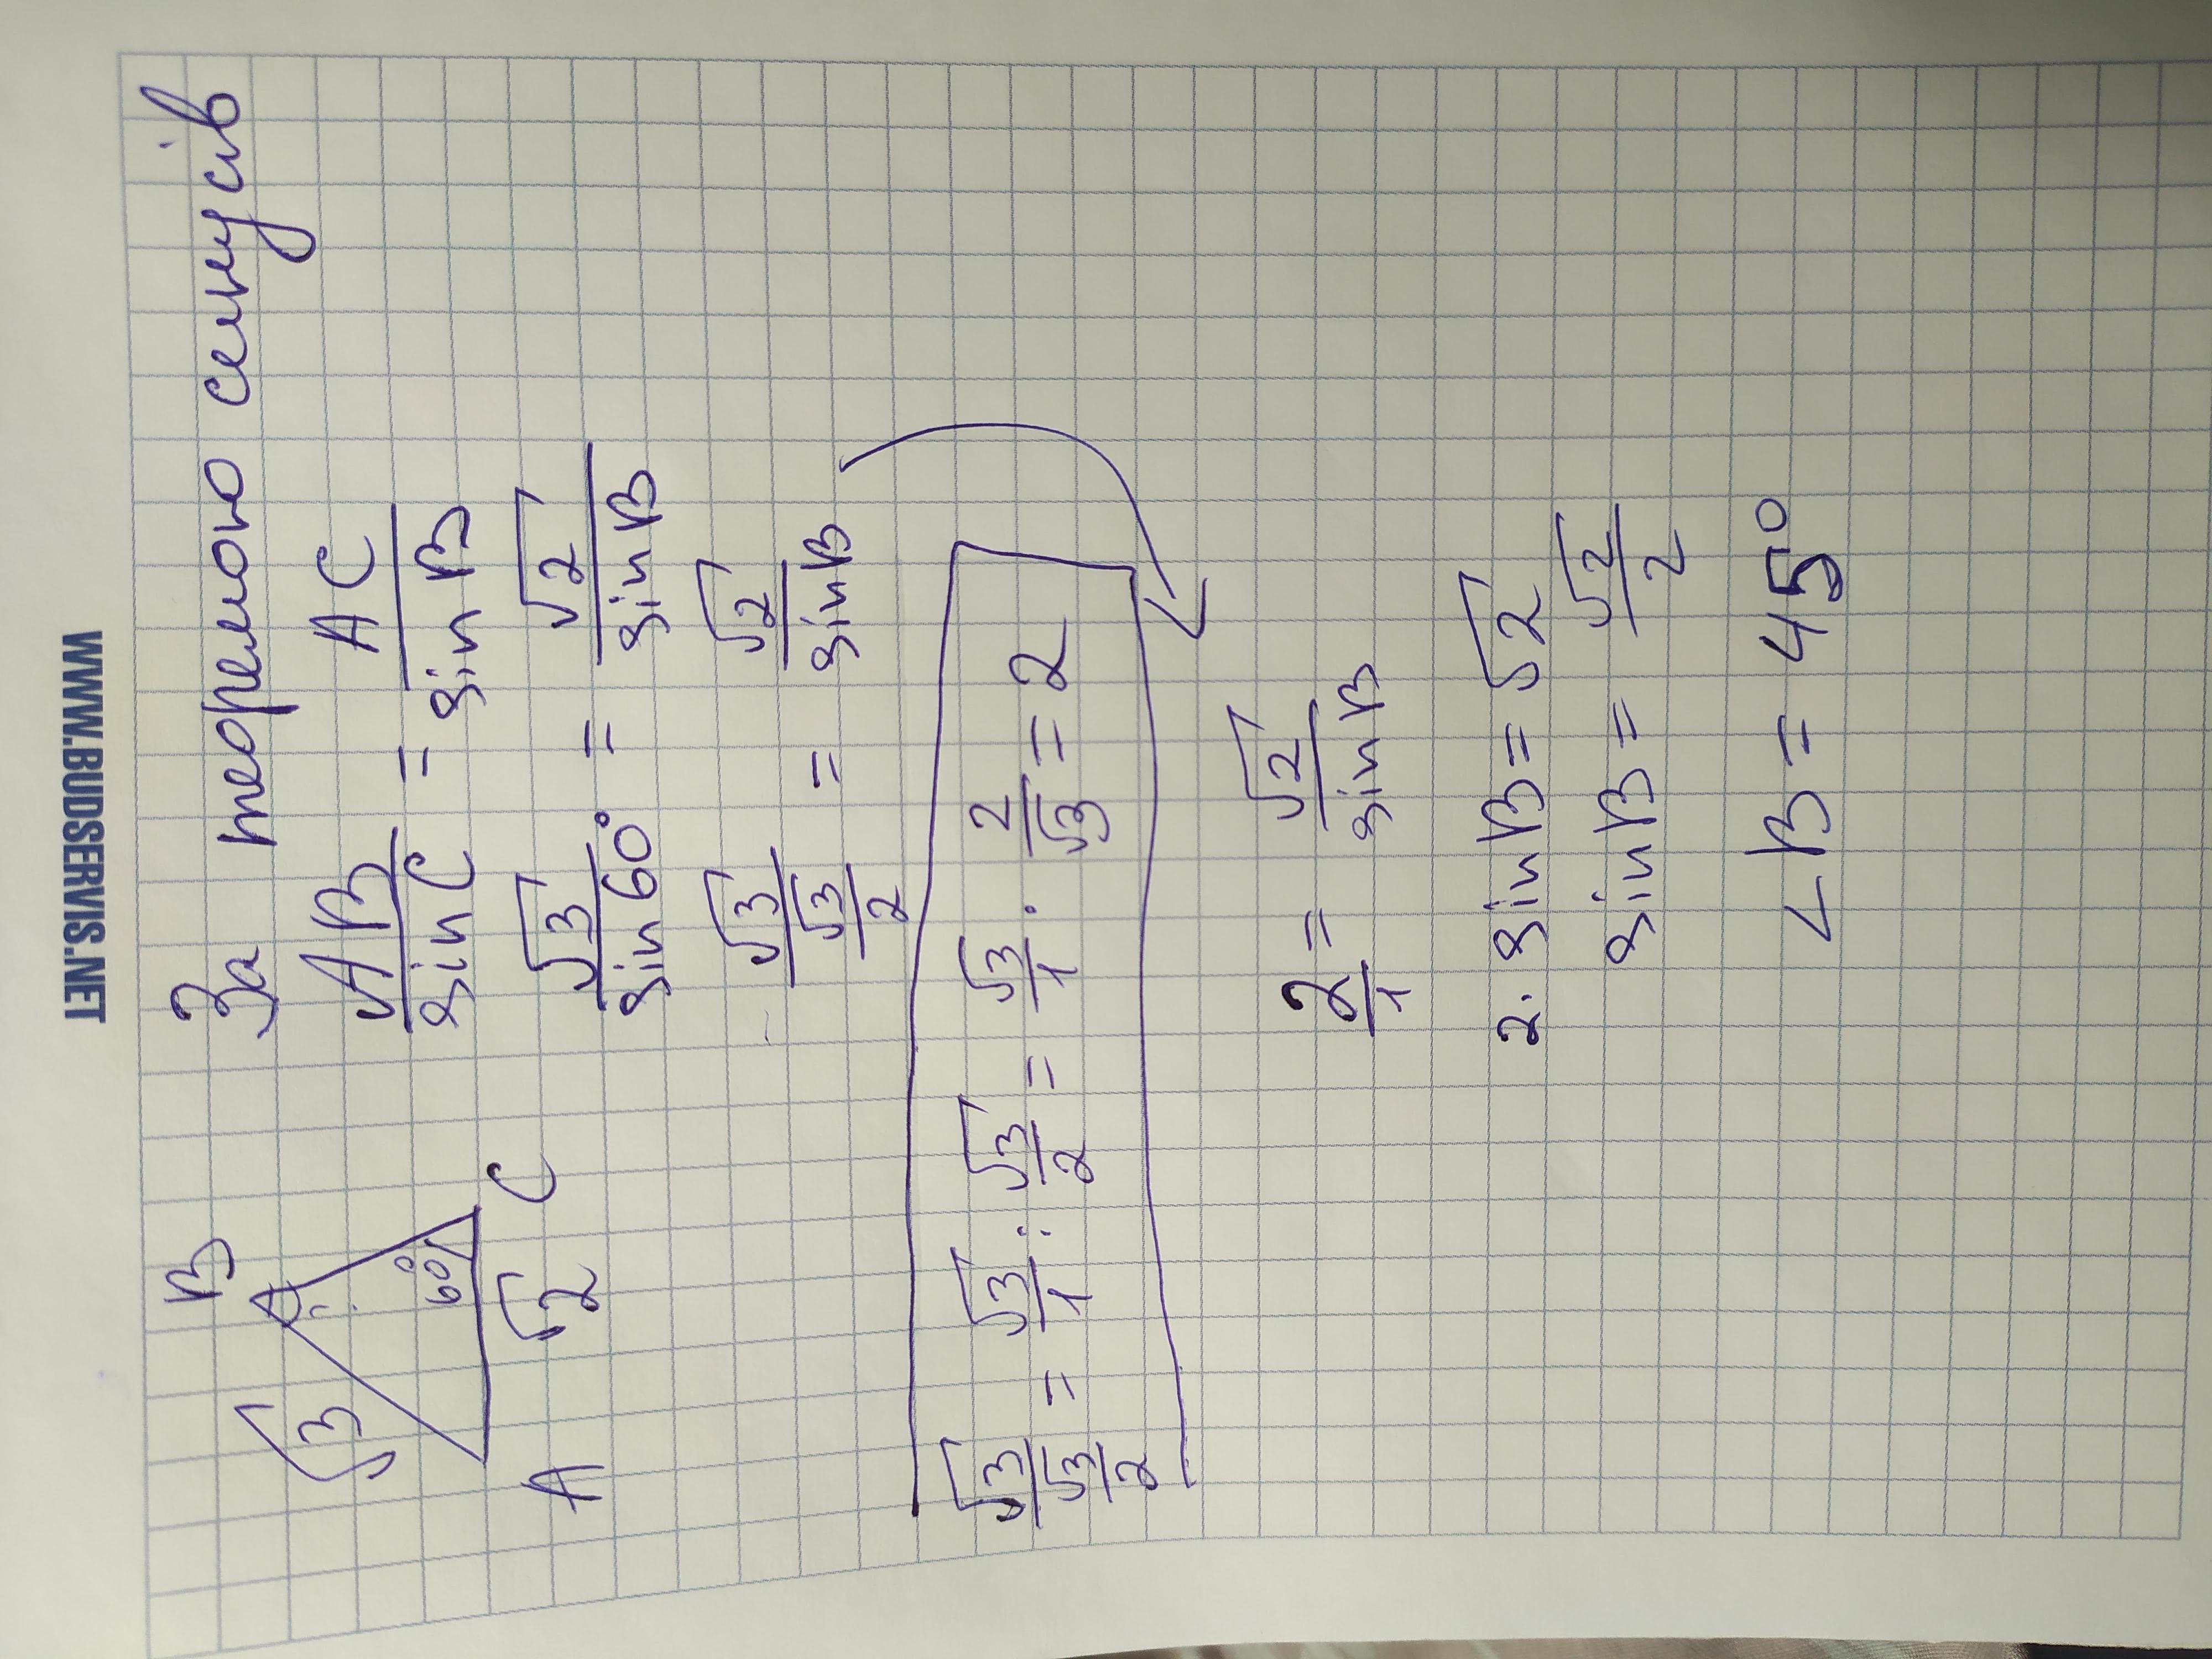 WWW.BUDSERVIS.NET
За теоремою синусів
B
√3
60°
A √2 C
AB/sin C = AC/sin B
√3/sin 60° = √2/sin B
√3/(√3/2) = √2/sin B
√3/(√3/2) = √3/1 : √3/2 = √3/1 · 2/√3 = 2
2/1 = √2/sin B
2 · sin B = √2
sin B = √2/2
∠B = 45°